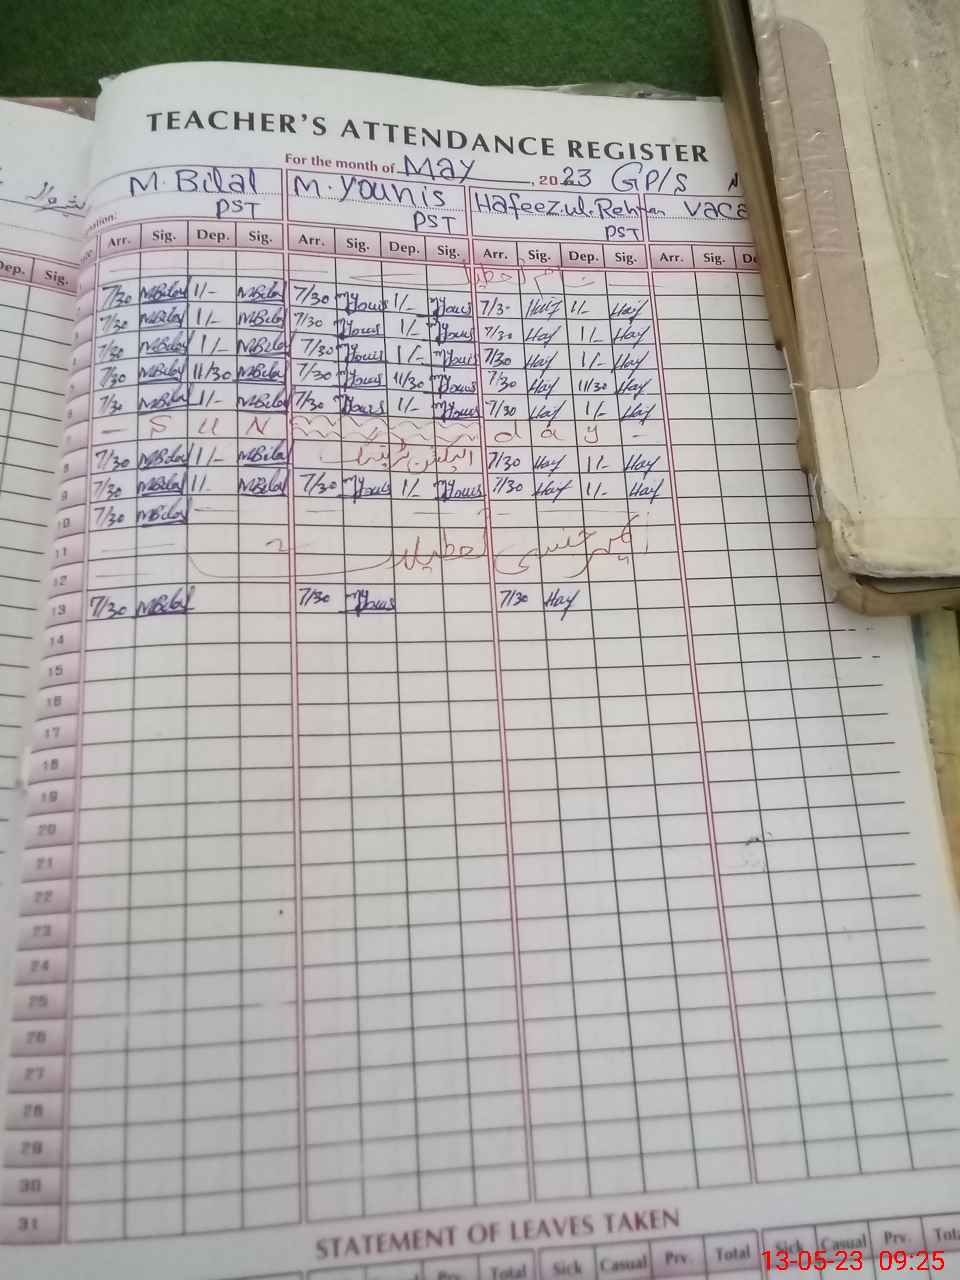 TEACHER'S ATTENDANCE REGISTER
For the month of May, 2023 GP/S
M. Bilal M. Younis Hafeez.ul.Rehman Vaca
PST PST PST
Arr. Sig. Dep. Sig. Arr. Sig. Dep. Sig. Arr. Sig. Dep. Sig. Arr. Sig. De
Dep. Sig.
7/30 MBilal 1/- MBilal 7/30 MYounis 1/- MYounis 7/30 Haf 1/- Haf
7/30 MBilal 1/- MBilal 7/30 MYounis 1/- MYounis 7/30 Haf 1/- Haf
4 7/30 MBilal 1/- MBilal 7/30 MYounis 1/- MYounis 7/30 Haf 1/- Haf
5 7/30 MBilal 11/30 MBilal 7/30 MYounis 11/30 MYounis 7/30 Haf 11/30 Haf
6 7/30 MBilal 1/- MBilal 7/30 MYounis 1/- MYounis 7/30 Haf 1/- Haf
7 — S U N d a y —
8 7/30 MBilal 1/- MBilal الیکشن ٹریننگ 7/30 Haf 1/- Haf
9 7/30 MBilal 1/- MBilal 7/30 MYounis 1/- MYounis 7/30 Haf 1/- Haf
10 7/30 MBilal
11 ایمرجنسی تعطیلات
12
13 7/30 MBilal 7/30 MYounis 7/30 Haf
14
15
16
17
18
19
20
21
22
23
24
25
26
27
28
29
30
31
STATEMENT OF LEAVES TAKEN
Sick Casual Prv. Total Sick Casual Prv. Total Sick Casual Prv. Tota
13-05-23 09:25